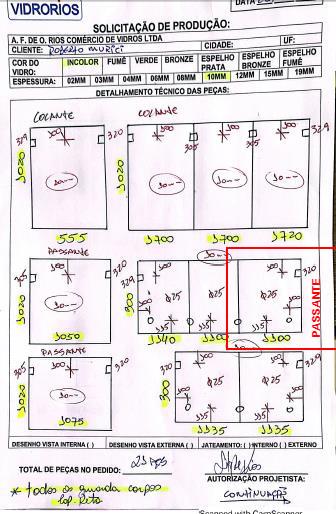 VIDRORIOS
SOLICITAÇÃO DE PRODUÇÃO:
A. F. DE O. RIOS COMÉRCIO DE VIDROS LTDA
CLIENTE: CIDADE: UF:
COR DO VIDRO: INCOLOR FUMÊ VERDE BRONZE ESPELHO PRATA ESPELHO BRONZE ESPELHO FUMÊ
ESPESSURA: 02MM 03MM 04MM 06MM 08MM 10MM 12MM 15MM 19MM
DETALHAMENTO TÉCNICO DAS PEÇAS:
COLANTE COLANTE
329 100 320 100 305 100 100 329
1020 10-- 1020 10-- 10-- 10--
555 1700 1700 1720
PASSANTE 10--
305 100 320 100 100 100 320
1020 10-- 900 100 Ø25 Ø25 Ø25 100
PASSANTE
115 115 115
1050 1140 1100 1100
PASSANTE 10--
305 100 320 100 100 329
1020 10-- 900 Ø25 Ø25 100
115 115
1075 1135 1135
DESENHO VISTA INTERNA ( ) DESENHO VISTA EXTERNA ( ) JATEAMENTO: ( ) INTERNO ( ) EXTERNO
TOTAL DE PEÇAS NO PEDIDO:
AUTORIZAÇÃO PROJETISTA:
* todos os guarda corpos
Lap. Reta
CONTINUAÇÃO
Scanned with CamScanner